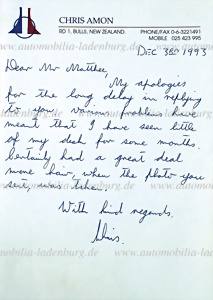 CHRIS AMON
RD 1, BULLS, NEW ZEALAND.
PHONE/FAX 0-6-3221491
MOBILE 025 423 995
DEC 3RD 1993
Dear Mr Matthee,
My apologies
for the long delay in replying
to you various problems have
meant that I have seen little
of my desk for some months.
Certainly had a great deal
more hair, when the photo you
sent, was taken.
With kind regards.
Chris.
www.automobilia-ladenburg.de